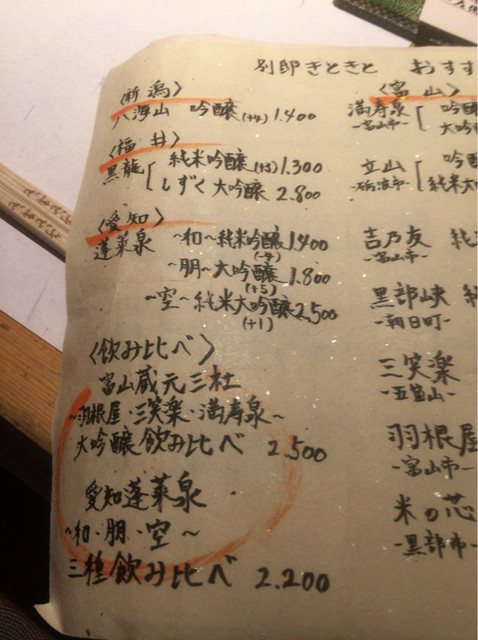 別邸きときと おすす
〈新潟〉
八海山 吟醸(+4) 1.400
〈福井〉
黒龍 純米吟醸(+3) 1.300
しずく 大吟醸 2.800
〈愛知〉
蓬莱泉 ～和～純米吟醸 1.400
(-4)
～朋～大吟醸 1.800
(+5)
～空～純米大吟醸 2.500
(+1)
〈飲み比べ〉
富山蔵元三社
～羽根屋・三笑楽・満寿泉～
大吟醸飲み比べ 2.500
愛知蓬莱泉
～和・朋・空～
三種飲み比べ 2.200
〈富山〉
満寿泉 吟醸
-富山市- 大吟
立山 吟醸
-砺波市- 純米大
吉乃友 純
-富山市-
黒部峡 純
-朝日町-
三笑楽
-五箇山-
羽根屋
-富山市-
米の芯
-黒部市-